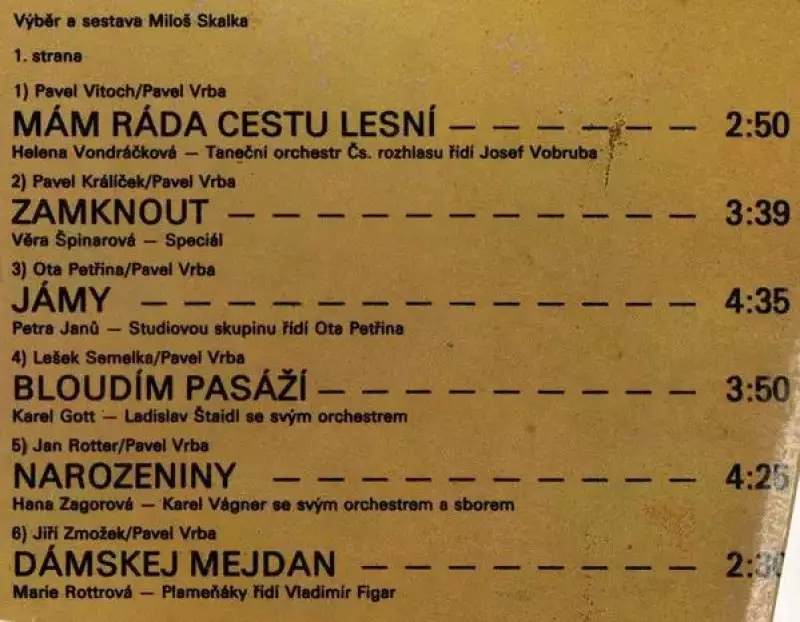 Výběr a sestava Miloš Skalka
1. strana
1) Pavel Vitoch/Pavel Vrba
MÁM RÁDA CESTU LESNÍ — — — — — — — 2:50
Helena Vondráčková — Taneční orchestr Čs. rozhlasu řídí Josef Vobruba
2) Pavel Králíček/Pavel Vrba
ZAMKNOUT — — — — — — — — — — — — — 3:39
Věra Špinarová — Speciál
3) Ota Petřina/Pavel Vrba
JÁMY — — — — — — — — — — — — — — — 4:35
Petra Janů — Studiovou skupinu řídí Ota Petřina
4) Lešek Semelka/Pavel Vrba
BLOUDÍM PASÁŽÍ — — — — — — — — — — 3:50
Karel Gott — Ladislav Štaidl se svým orchestrem
5) Jan Rotter/Pavel Vrba
NAROZENINY — — — — — — — — — — — 4:25
Hana Zagorová — Karel Vágner se svým orchestrem a sborem
6) Jiří Zmožek/Pavel Vrba
DÁMSKEJ MEJDAN — — — — — — — — —
Marie Rottrová — Plameňáky řídí Vladimír Figar